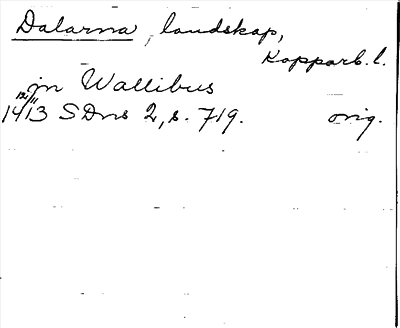 Dalarna, landskap,
Kopparb. l.
in Wallibus
1413 12/11 SDns 2, s. 719. orig.